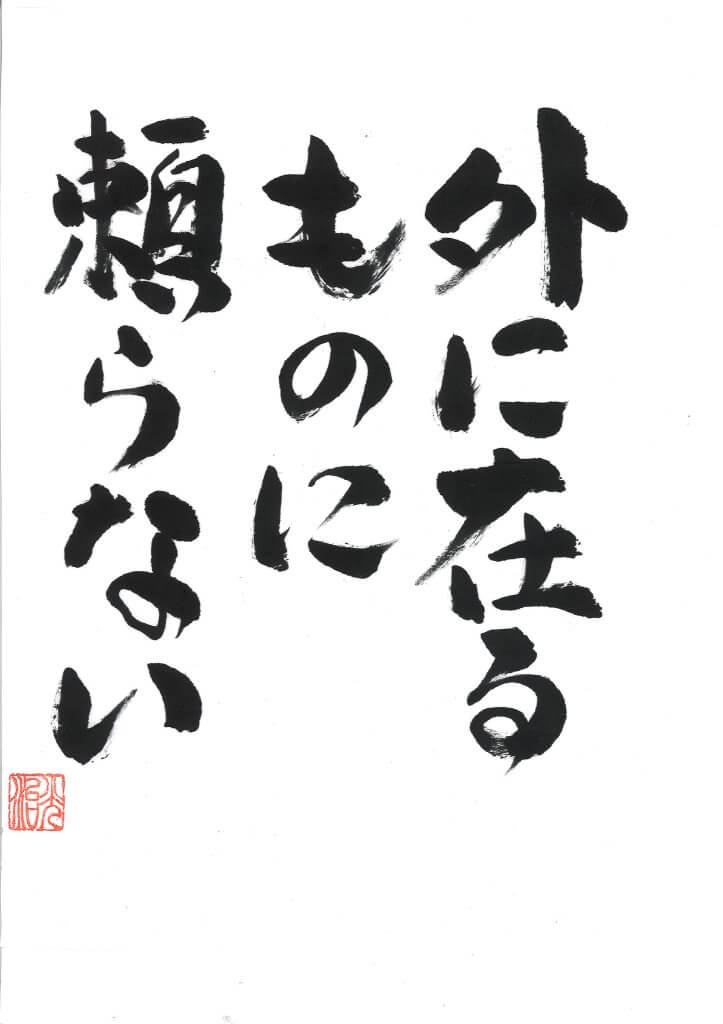 外に在る
ものに
頼らない